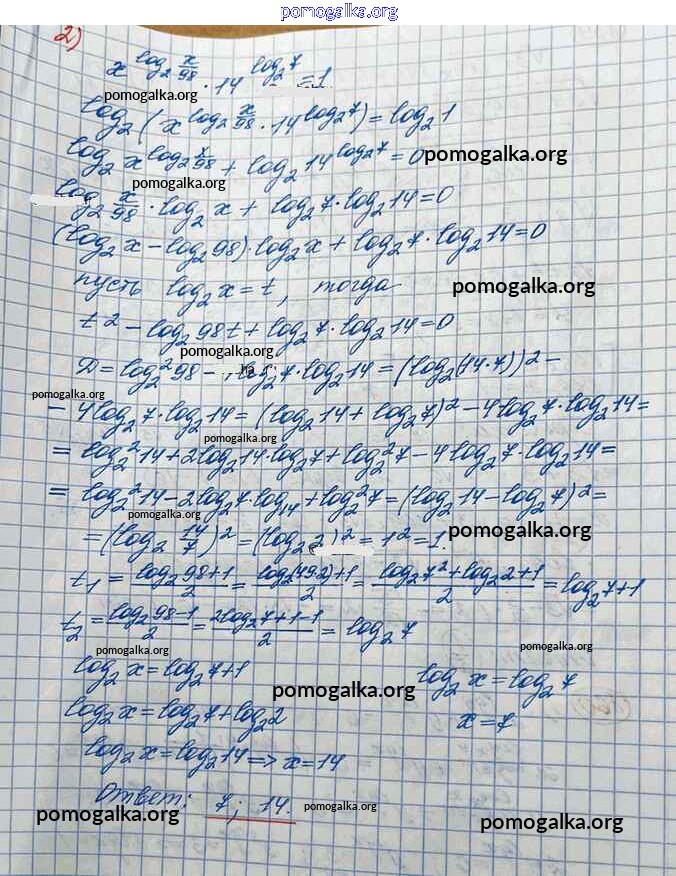 pomogalka.org
2)
x^{log_2 x/98} · 14^{log_2 7} = 1
pomogalka.org
log_2 (x^{log_2 x/98} · 14^{log_2 7}) = log_2 1
log_2 x^{log_2 x/98} + log_2 14^{log_2 7} = 0 pomogalka.org
pomogalka.org
log_2 x/98 · log_2 x + log_2 7 · log_2 14 = 0
(log_2 x - log_2 98) · log_2 x + log_2 7 · log_2 14 = 0
пусть log_2 x = t, тогда pomogalka.org
t^2 - log_2 98 t + log_2 7 · log_2 14 = 0
pomogalka.org
D = log_2^2 98 - log_2 7 · log_2 14 = (log_2 (14·7))^2 -
pomogalka.org
- 4 log_2 7 · log_2 14 = (log_2 14 + log_2 7)^2 - 4 log_2 7 · log_2 14 =
pomogalka.org
= log_2^2 14 + 2 log_2 14 · log_2 7 + log_2^2 7 - 4 log_2 7 · log_2 14 =
= log_2^2 14 - 2 log_2 7 · log_14 + log_2^2 7 = (log_2 14 - log_2 7)^2 =
pomogalka.org
= (log_2 14/7)^2 = (log_2 2)^2 = 1^2 = 1. pomogalka.org
t_1 = (log_2 98+1)/2 = (log_2(49·2)+1)/2 = (log_2 7^2 + log_2 2+1)/2 = log_2 7+1
t_2 = (log_2 98-1)/2 = (2log_2 7+1-1)/2 = log_2 7
pomogalka.org pomogalka.org
log_2 x = log_2 7+1
log_2 x = log_2 7
pomogalka.org
log_2 x = log_2 7 + log_2 2
x = 7
log_2 x = log_2 14 => x = 14
Ответ: 7; 14. pomogalka.org
pomogalka.org pomogalka.org